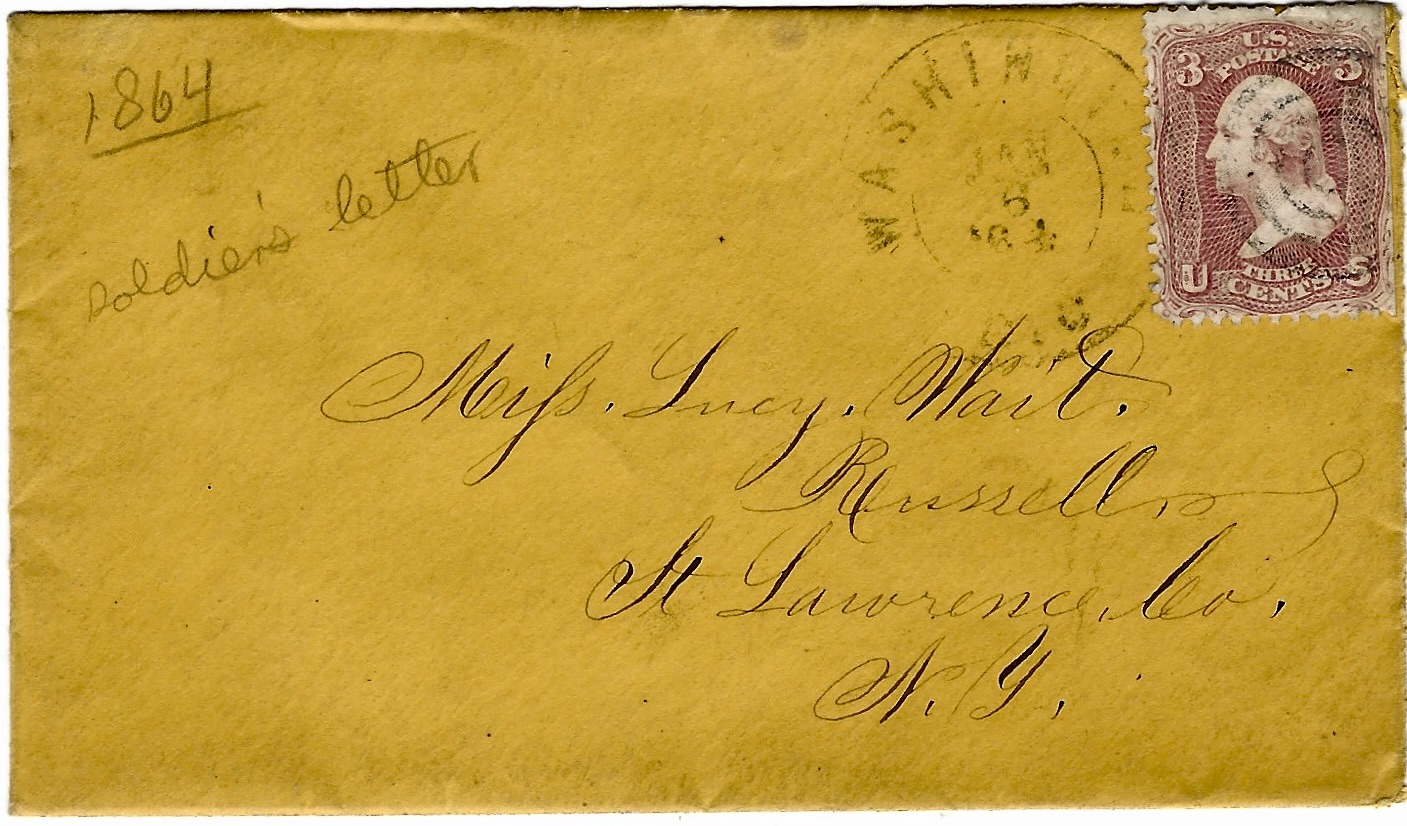 1864
soldier's letter
WASHIN
JAN
5
D.C.
U.S.
POSTAGE
3 3
THREE
U CENTS S
Miſs. Lucy. Wait.
Russell,
St Lawrence, Co,
N. Y.